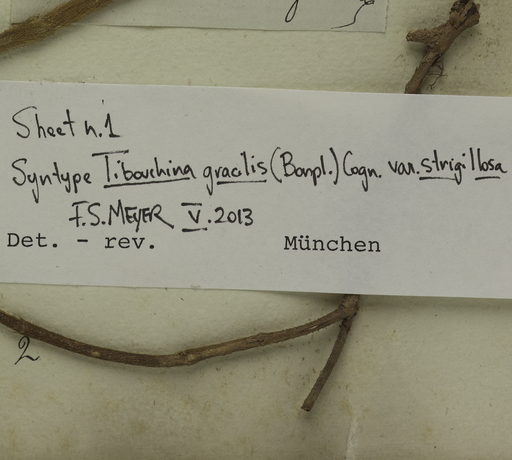 Sheet n.1
Syntype Tibouchina gracilis (Bonpl.) Cogn. var. strigillosa
F.S. MEYER V.2013
Det. - rev. München
2